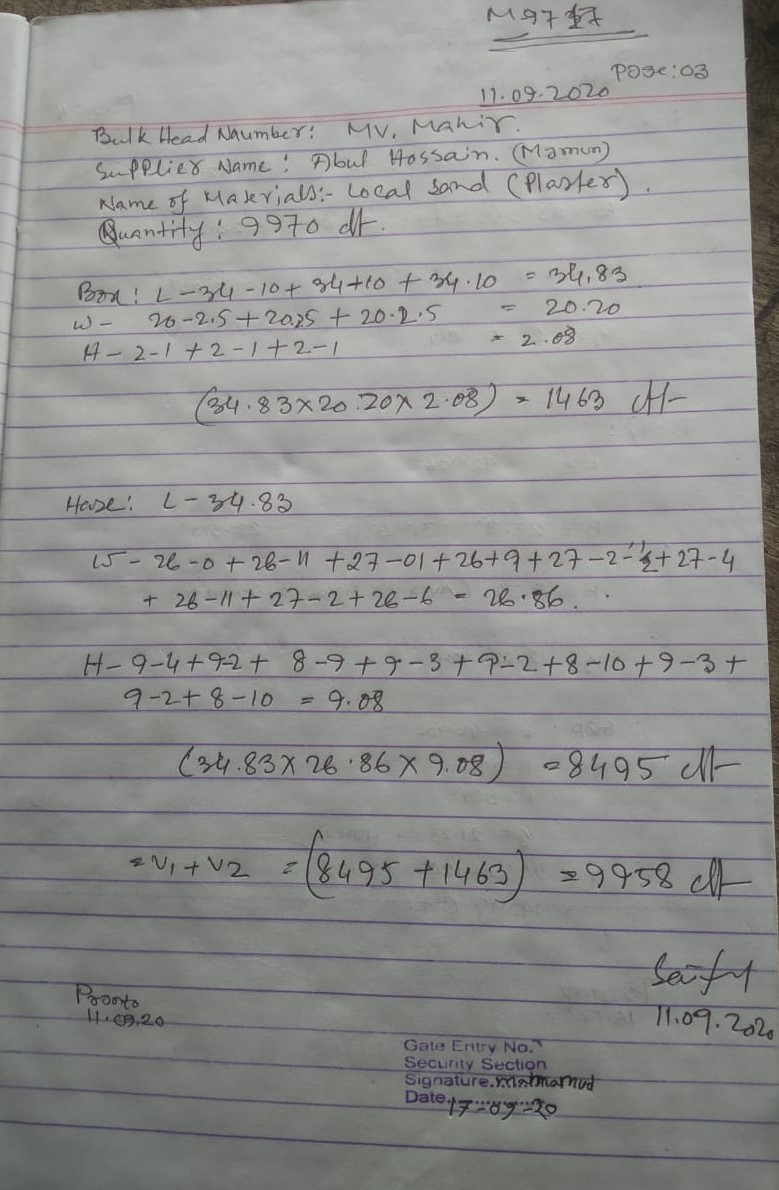 Page: 03
11.09.2020
Bulk Head Naumber: MV. Mahir.
Supplier Name: Abul Hossain. (Mamun)
Name of Materials:- Local Sand (Plaster).
Quantity: 9970 cft.
Box: L-34-10+34+10+34.10 = 34.83
W- 20-2.5+20.25+20.2.5 = 20.20
H-2-1+2-1+2-1 = 2.08
(34.83×20.20×2.08) = 1463 cft
L-34.83
W-26-0+26-11+27-01+26+9+27-2+27-4
+26-11+27-2+26-6=26.86.
H-9-4+9-2+8-9+9-3+9-2+8-10+9-3+
9-2+8-10=9.08
(34.83×26.86×9.08) =8495 cft
=V1+V2 =(8495+1463) =9958 cft
11.09.2020
11.09.20
Gate Entry No.
Security Section
Signature.
Date. 17-09-20